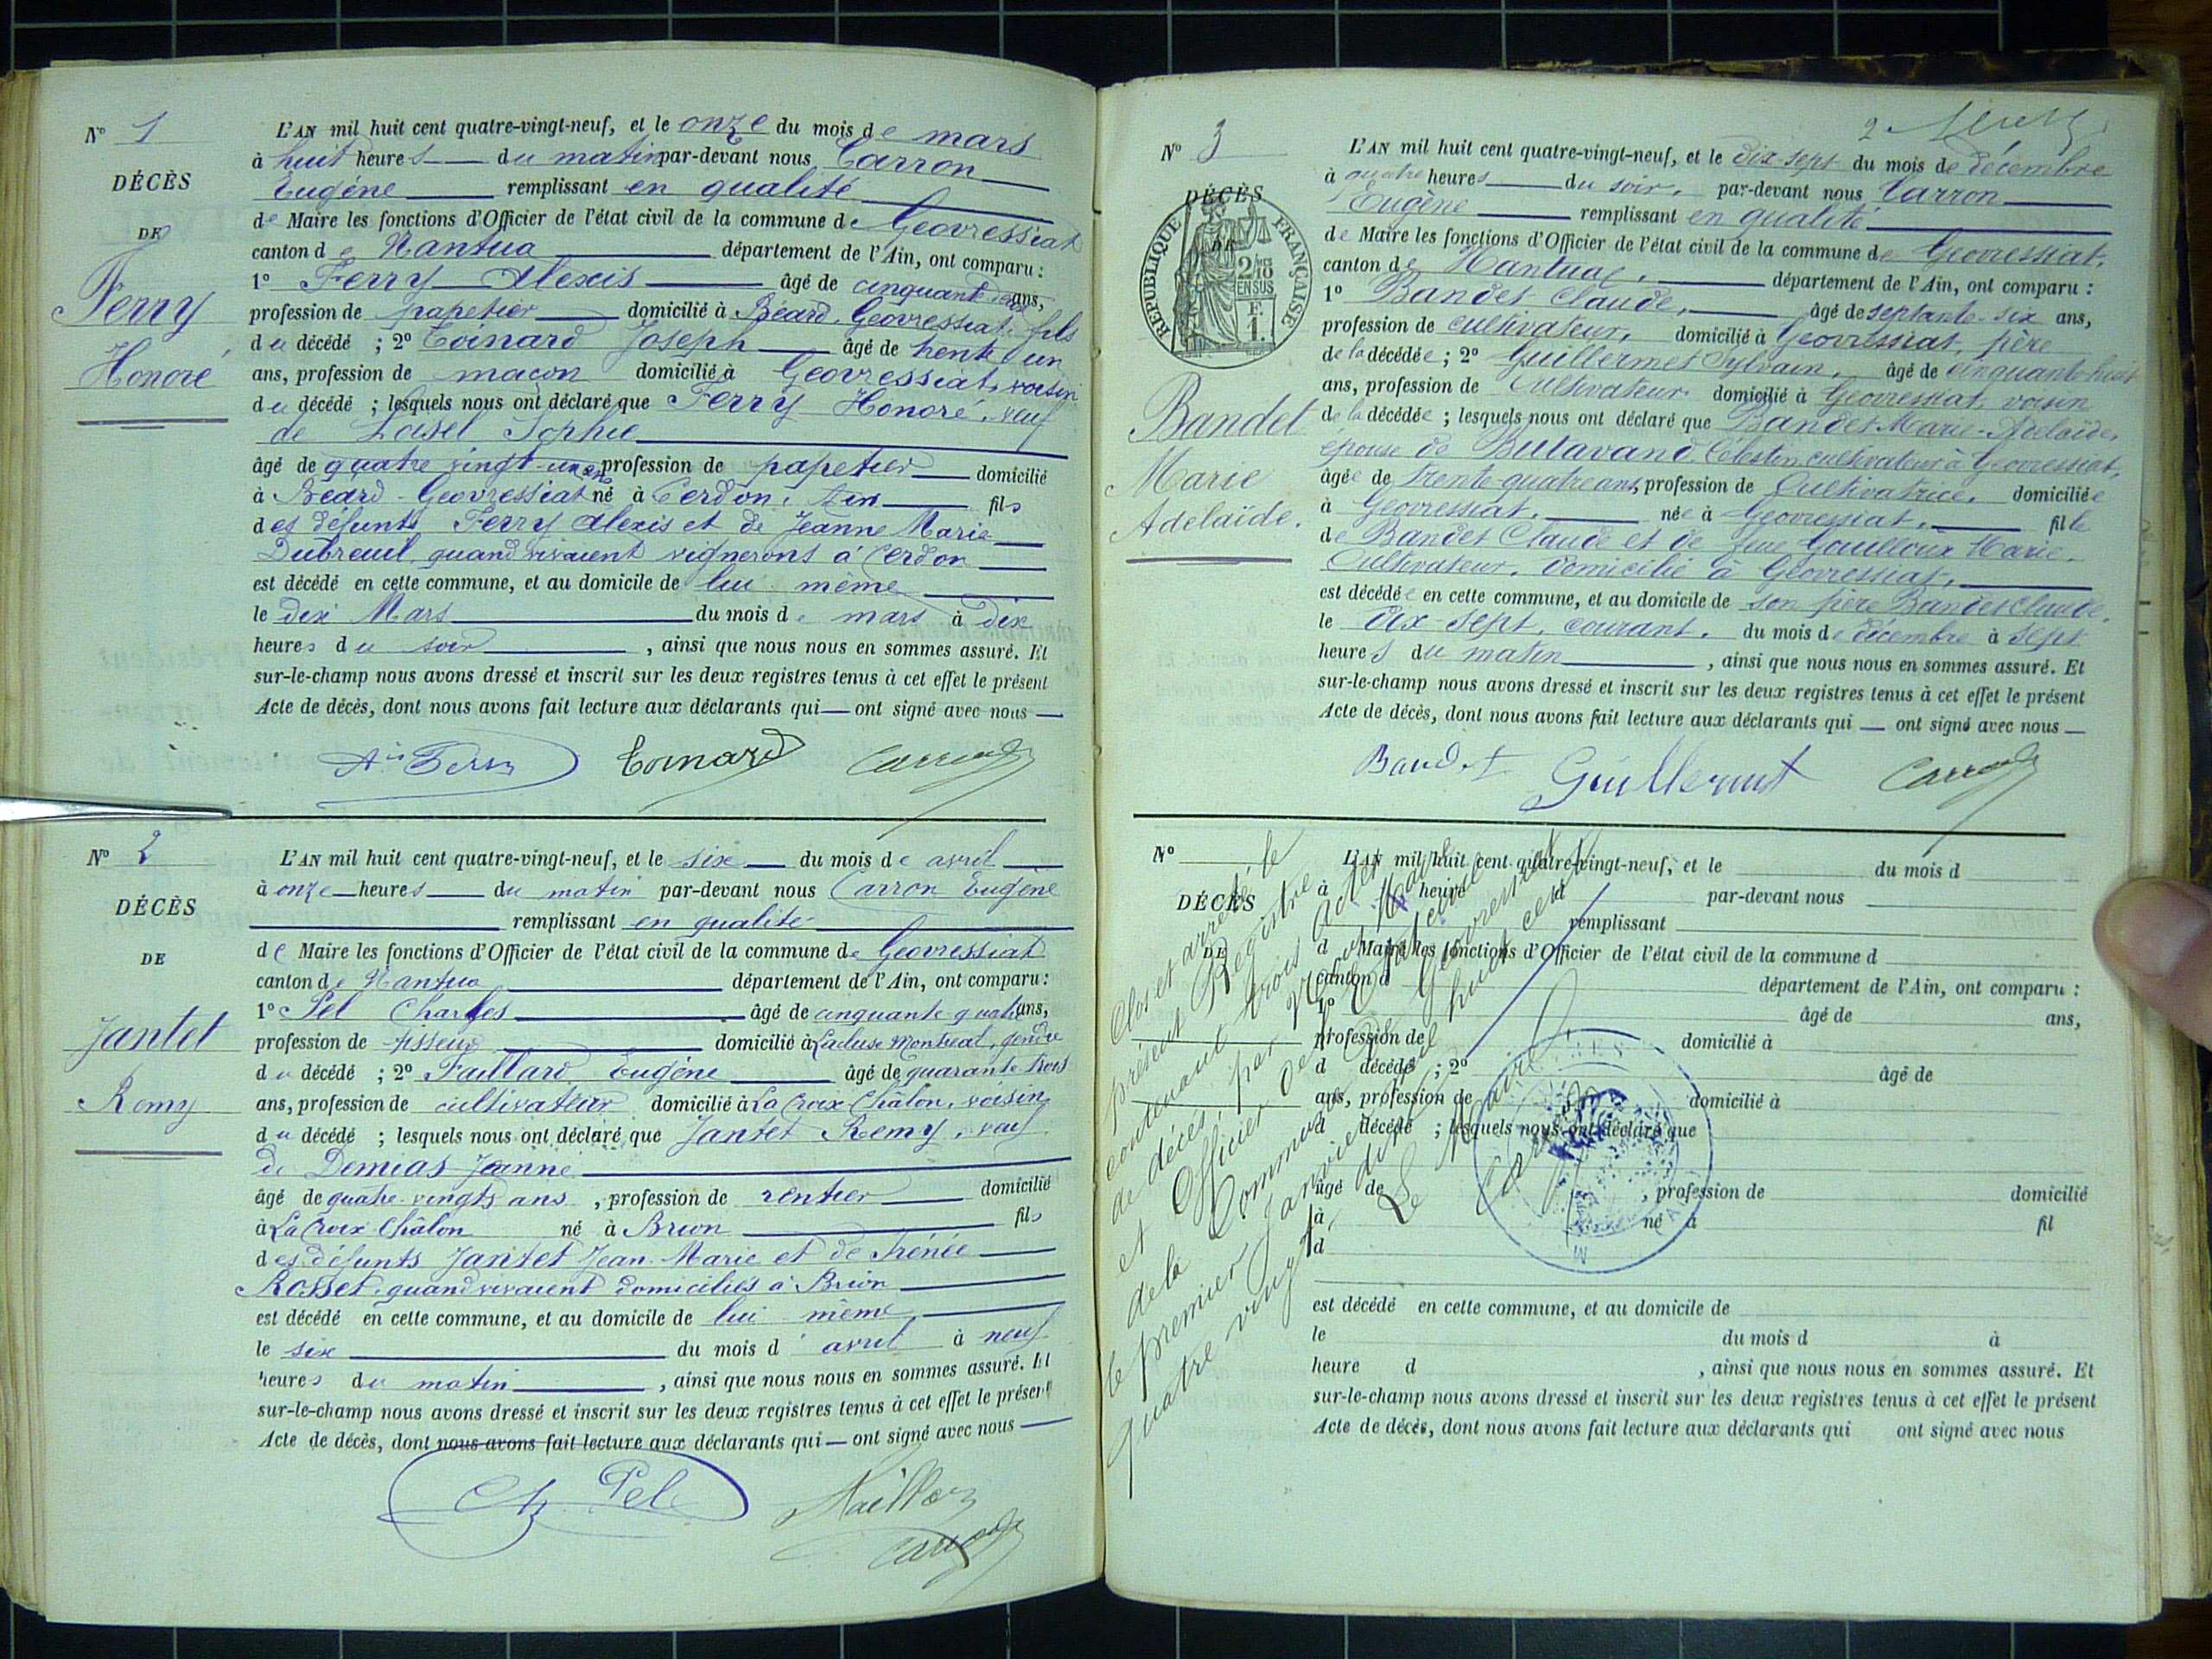 N° 1
DÉCÈS
DE
Ferry
Honoré
L'AN mil huit cent quatre-vingt-neuf, et le onze du mois de mars
à huit heures du matin par-devant nous Carron
Eugène remplissant en qualité
de Maire les fonctions d'Officier de l'état civil de la commune de Geovressiat
canton de Nantua département de l'Ain, ont comparu :
1° Ferry Alexis âgé de cinquante deux ans,
profession de papetier domicilié à Béard-Geovressiat, fils
du décédé ; 2° Toinard Joseph âgé de trente un
ans, profession de maçon domicilié à Geovressiat, voisin
du décédé ; lesquels nous ont déclaré que Ferry Honoré, veuf
de Loisel Sophie
âgé de quatre vingt-un ans profession de papetier domicilié
à Béard-Geovressiat né à Cerdon, Ain fils
des défunts Ferry Alexis et de Jeanne Marie
Dubreuil, quand vivaient vignerons à Cerdon
est décédé en cette commune, et au domicile de lui même
le dix Mars du mois de mars à dix
heures du soir , ainsi que nous nous en sommes assuré. Et
sur-le-champ nous avons dressé et inscrit sur les deux registres tenus à cet effet le présent
Acte de décès, dont nous avons fait lecture aux déclarants qui — ont signé avec nous —
Toinard Carron
N° 2
DÉCÈS
DE
Jantet
Remy
L'AN mil huit cent quatre-vingt-neuf, et le six du mois de avril
à onze heures du matin par-devant nous Carron Eugène
remplissant en qualité
de Maire les fonctions d'Officier de l'état civil de la commune de Geovressiat
canton de Nantua département de l'Ain, ont comparu :
1° Pel Charles âgé de cinquante quatre ans,
profession de tisseur domicilié à Lacluse Montreal, gendre
du décédé ; 2° Paillard Eugène âgé de quarante trois
ans, profession de cultivateur domicilié à La Croix-Châlon, voisin
du décédé ; lesquels nous ont déclaré que Jantet Remy, veuf
de Demias Jeanne
âgé de quatre-vingts ans , profession de rentier domicilié
à La Croix Châlon né à Brion fils
des défunts Jantet Jean-Marie et de Irénée
Rosset, quand vivaient domiciliés à Brion
est décédé en cette commune, et au domicile de lui même
le six du mois d'avril à neuf
heures du matin , ainsi que nous nous en sommes assuré. Et
sur-le-champ nous avons dressé et inscrit sur les deux registres tenus à cet effet le présent
Acte de décès, dont nous avons fait lecture aux déclarants qui — ont signé avec nous —
Ch. Pel
Carron
N° 3
DÉCÈS
DE
RÉPUBLIQUE FRANÇAISE
2/10
EN SUS
Bandet
Marie
Adelaïde.
2
L'AN mil huit cent quatre-vingt-neuf, et le dix-sept du mois de décembre
à quatre heures du soir, par-devant nous Carron
Eugène remplissant en qualité
de Maire les fonctions d'Officier de l'état civil de la commune de Geovressiat,
canton de Nantua, département de l'Ain, ont comparu :
1° Bandet Claude, âgé de septante-six ans,
profession de cultivateur, domicilié à Geovressiat, père
de la décédée ; 2° Guillermet Sylvain, âgé de cinquante-huit
ans, profession de Cultivateur domicilié à Geovressiat, voisin
de la décédée ; lesquels nous ont déclaré que Bandet Marie-Adelaïde,
épouse de Butavand Célestin, cultivateur à Geovressiat,
âgée de trente-quatre ans, profession de Cultivatrice, domiciliée
à Geovressiat, née à Geovressiat, fille
de Bandet Claude et de feue Gouilloux Marie,
Cultivateur, domicilié à Geovressiat,
est décédée en cette commune, et au domicile de son père Bandet Claude,
le dix-sept, courant, du mois de décembre à sept
heures du matin , ainsi que nous nous en sommes assuré. Et
sur-le-champ nous avons dressé et inscrit sur les deux registres tenus à cet effet le présent
Acte de décès, dont nous avons fait lecture aux déclarants qui — ont signé avec nous —
Bandet Guillermet Carron
N°
DÉCÈS
DE
L'AN mil huit cent quatre-vingt-neuf, et le du mois d
à heure d par-devant nous
remplissant
d Maire les fonctions d'Officier de l'état civil de la commune d
canton d département de l'Ain, ont comparu :
1° âgé de ans,
profession de domicilié à
d décédé ; 2° âgé de
ans, profession de domicilié à
d décédé ; lesquels nous ont déclaré que
âgé de , profession de domicilié
à né à fil
d
est décédé en cette commune, et au domicile de
le du mois d à
heure d , ainsi que nous nous en sommes assuré. Et
sur-le-champ nous avons dressé et inscrit sur les deux registres tenus à cet effet le présent
Acte de décès, dont nous avons fait lecture aux déclarants qui ont signé avec nous
Clos et arrêté le
présent Registre
contenant trois actes
de décès, par nous Maire
et Officier de l'état civil
de la Commune de Geovressiat
le premier janvier mil huit cent
quatre vingt dix
Le Maire
Carron